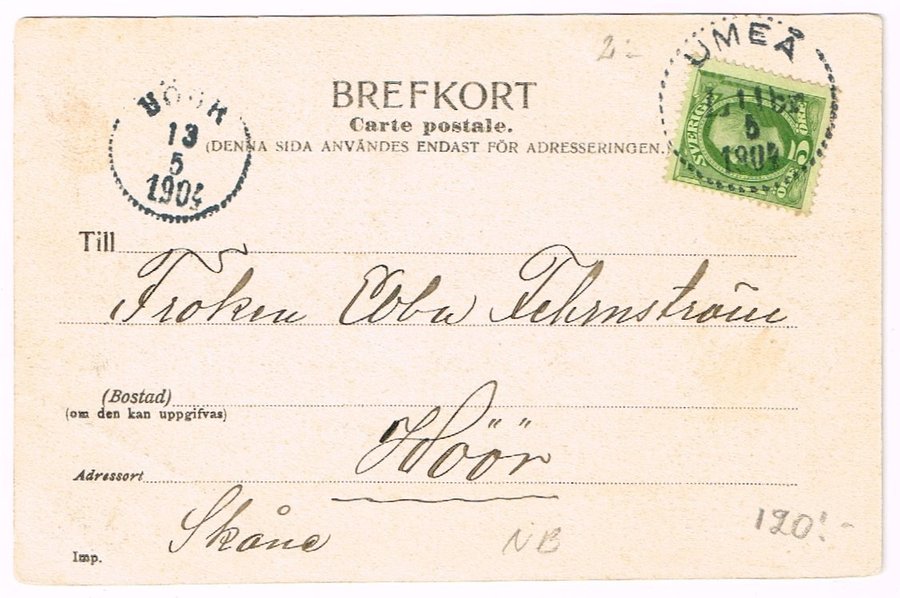 2:-
UMEÅ
11
5
1904
SVERIGE
5
ÖRE
BREFKORT
Carte postale.
(DENNA SIDA ANVÄNDES ENDAST FÖR ADRESSERINGEN.)
13
5
1904
Till
Fröken Ebba Fehrnström
(Bostad)
(om den kan uppgifvas)
Höör
Adressort
Skåne
NB
120:-
Imp.